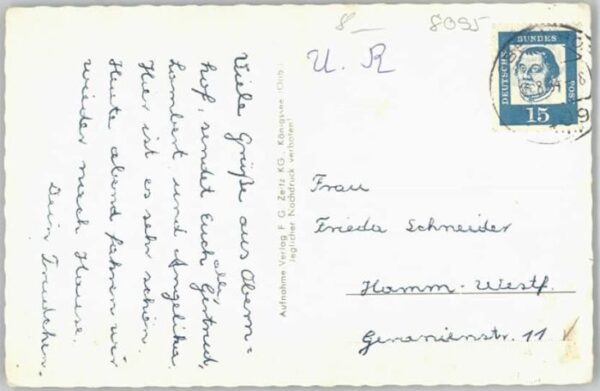 8 8095
U. R
DEUTSCHE BUNDESPOST
15
Viele Grüße aus Obern=
hof, sendet Euch allen Gertrud,
Lambert und Angelika.
Hier ist es sehr schön.
Heute abend fahren wir
wieder nach Hause.
Dein Trudchen.
Aufnahme Verlag F. G. Zeitz KG., Königssee (Obb.)
Jeglicher Nachdruck verboten!
Frau
Frieda Schneider
Hamm-Westf.
Geranienstr. 11